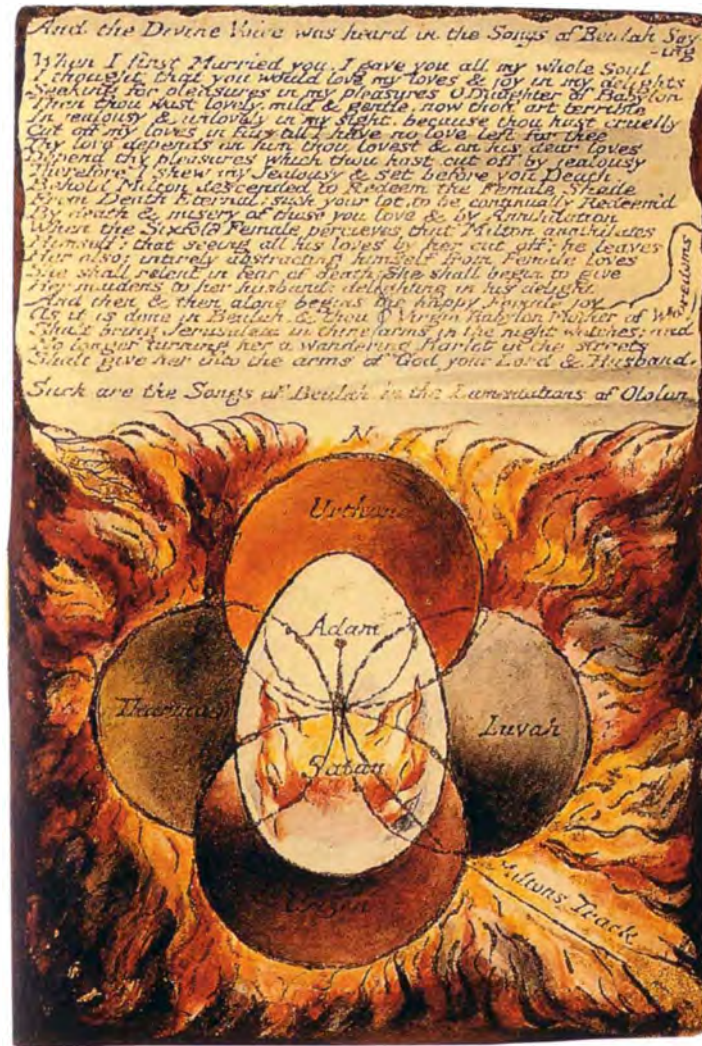 And the Divine Voice was heard in the Songs of Beulah Say-
-ing
When I first Married you, I gave you all my whole Soul
I thought that you would love my loves & joy in my delights
Seeking for pleasures in my pleasures O Daughter of Babylon
Then thou wast lovely, mild & gentle, now thou art terrible
In jealousy & unlovely in my sight, because thou hast cruelly
Cut off my loves in fury till I have no love left for thee
Thy love depends on him thou lovest & on his dear loves
Depend thy pleasures which thou hast cut off by jealousy
Therefore I shew my Jealousy & set before you Death.
Behold Milton descended to Redeem the Female Shade
From Death Eternal; such your lot, to be continually Redeem'd
By death & misery of those you love & by Annihilation
When the Sixfold Female percieves that Milton annihilates
Himself: that seeing all his loves by her cut off: he leaves
Her also: intirely abstracting himself from Female loves
She shall relent in fear of death: She shall begin to give
Her maidens to her husband: delighting in his delight
And then & then alone begins the happy Female joy
As it is done in Beulah, & thou O Virgin Babylon Mother of Whoredoms
Shalt bring Jerusalem in thine arms in the night watches; and
No longer turning her a wandering Harlot in the streets
Shalt give her into the arms of God your Lord & Husband.
Such are the Songs of Beulah in the Lamentations of Ololon
N
Urthona
Adam
Tharmas
Luvah
Satan
Urizen
Miltons Track